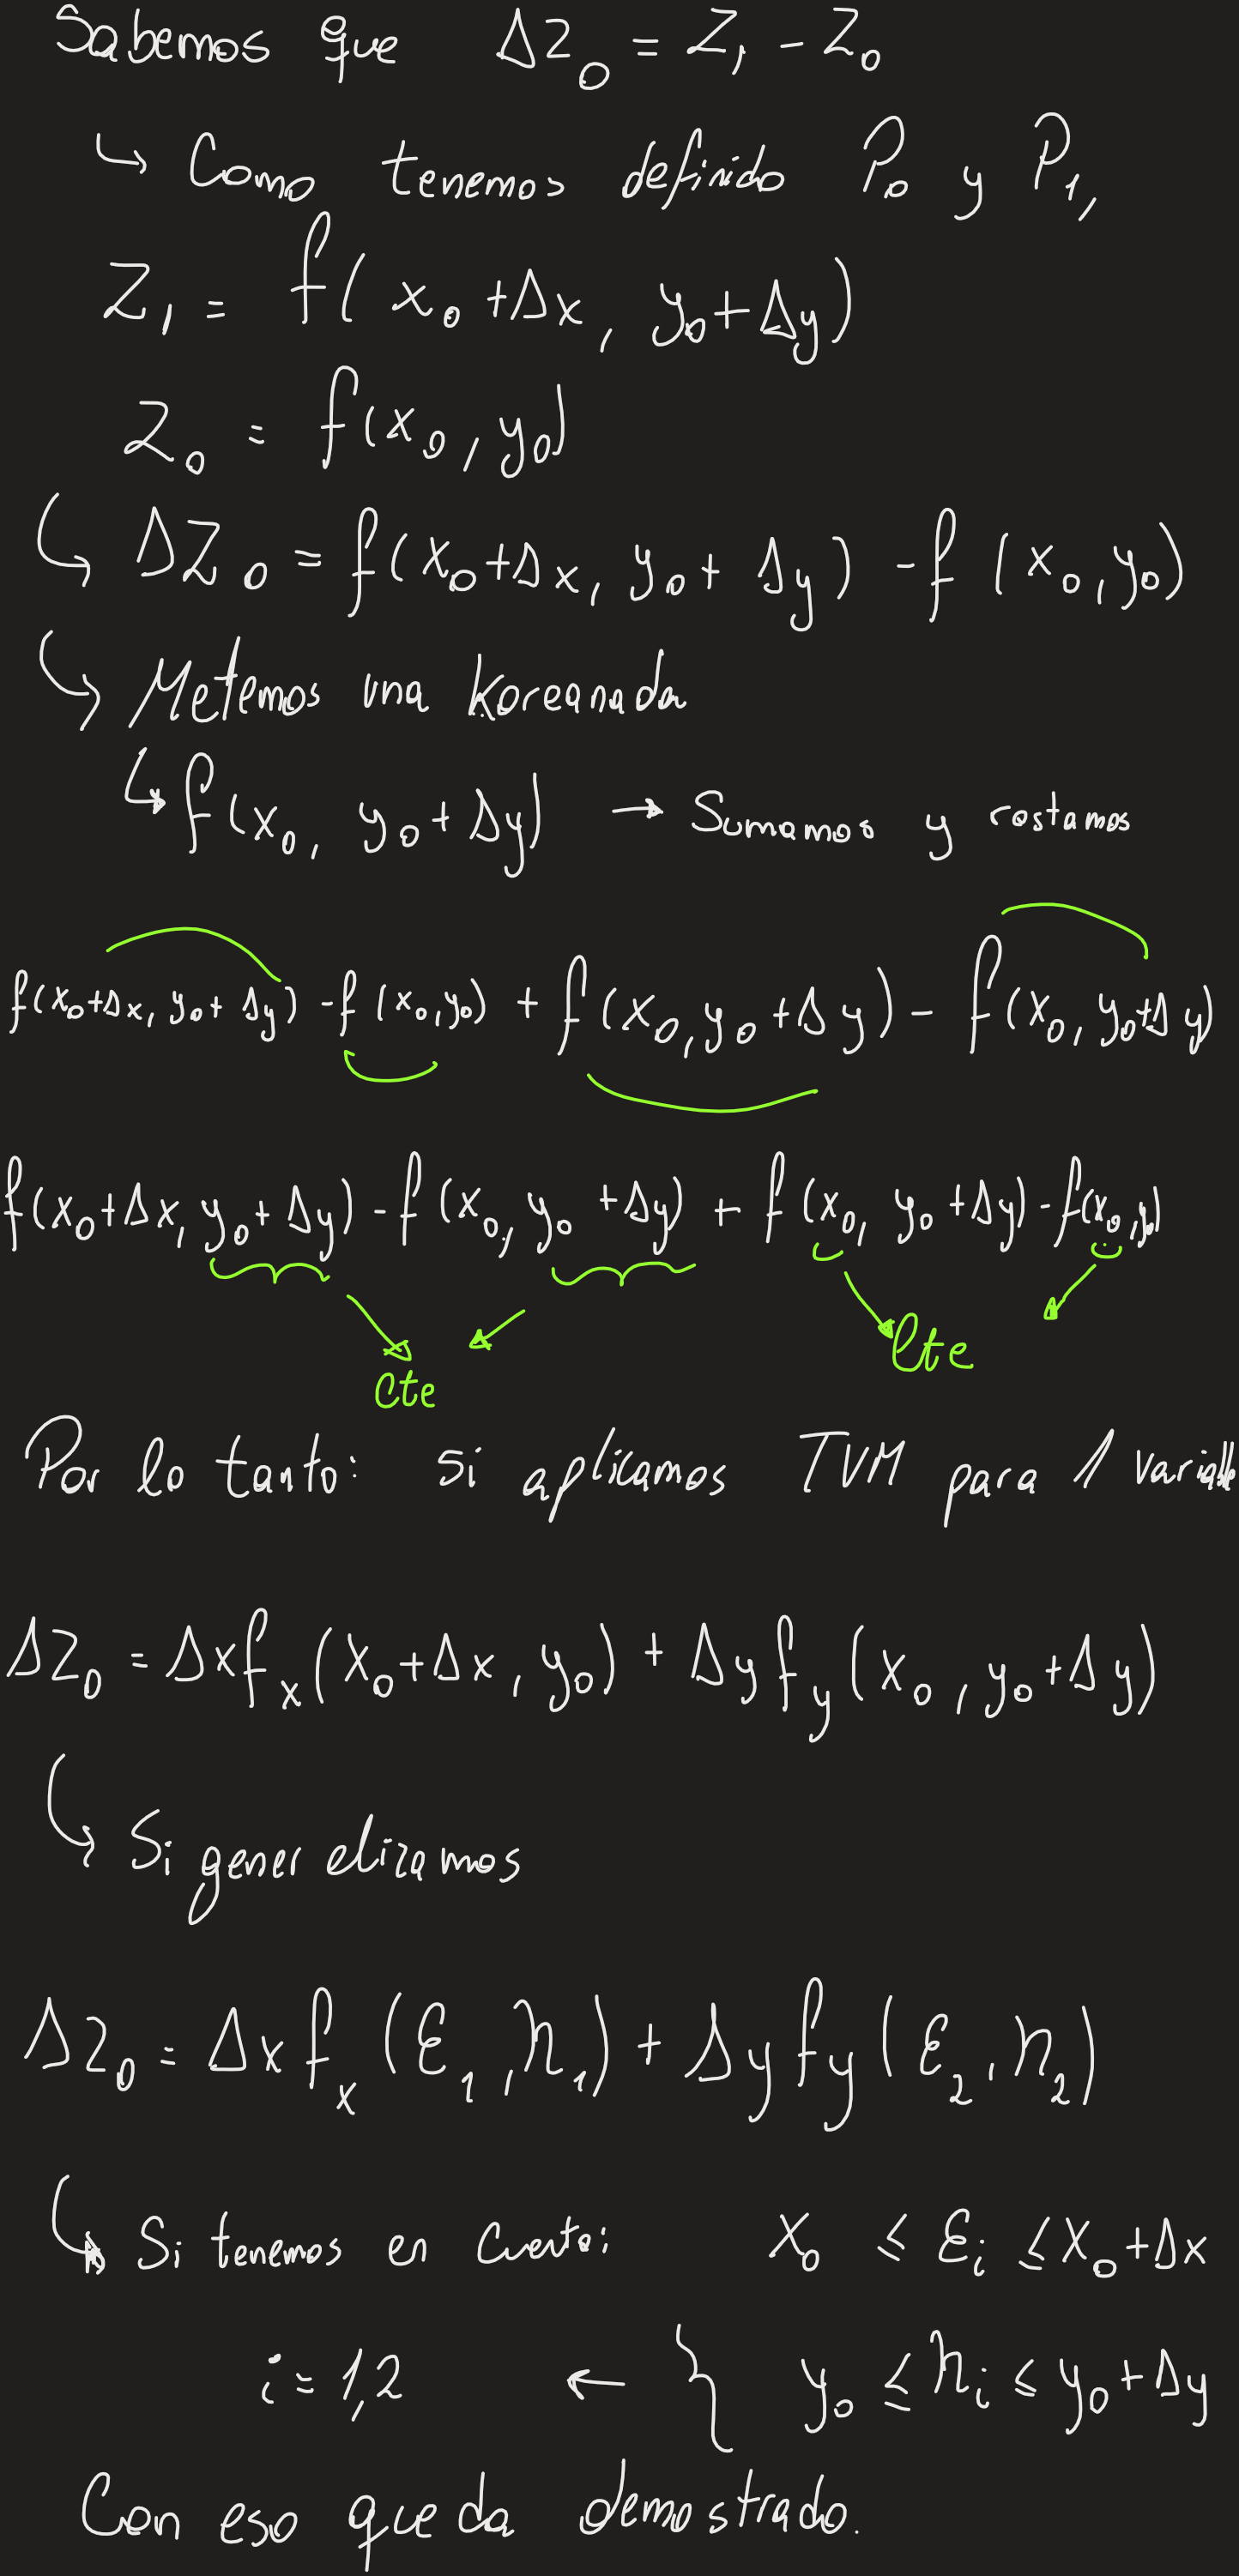 Sabemos que ΔZ₀ = Z₁ - Z₀
↳ Como tenemos definido P₀ y P₁,
Z₁ = f(x₀+Δx, y₀+Δy)
Z₀ = f(x₀, y₀)
↳ ΔZ₀ = f(x₀+Δx, y₀+Δy) - f(x₀, y₀)
↳ Metemos una Koreanada
↳ f(x₀, y₀+Δy) → Sumamos y restamos
f(x₀+Δx, y₀+Δy) - f(x₀, y₀) + f(x₀, y₀+Δy) - f(x₀, y₀+Δy)
f(x₀+Δx, y₀+Δy) - f(x₀, y₀+Δy) + f(x₀, y₀+Δy) - f(x₀, y₀)
cte cte
Por lo tanto: si aplicamos TVM para 1 variable
ΔZ₀ = Δx fₓ(x₀+Δx, y₀) + Δy f_y(x₀, y₀+Δy)
↳ Si generelizamos
ΔZ₀ = Δx fₓ(ε₁, η₁) + Δy f_y(ε₂, η₂)
↳ Si tenemos en cuenta: x₀ ≤ εᵢ ≤ x₀+Δx
i = 1,2 ← } y₀ ≤ ηᵢ ≤ y₀+Δy
Con eso queda demostrado.